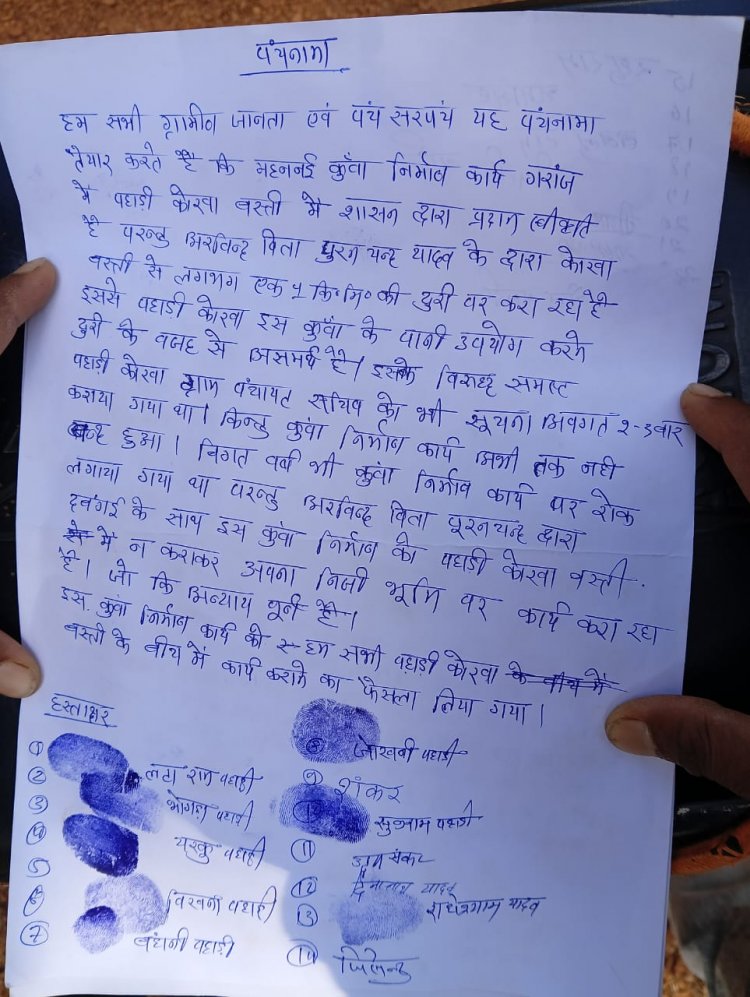 पंचनामा
हम सभी ग्रामीण जानता एवं पंच सरपंच यह पंचनामा
तैयार करते है कि महननई कुँवा निर्माण कार्य गरांज
में पहाडी कोरवा बस्ती में शासन द्वारा प्रदान स्वीकृति
है परन्तु अरविन्द पिता पुरन चन्द यादव के द्वारा कोरवा
बस्ती से लगभग एक 1 कि॰मि॰ की दुरी पर करा रहा है
इससे पहाडी कोरवा इस कुवाँ के पानी उपयोग करने
दुरी के वजह से असमर्थ है। इसके विरुद्ध समस्त
पहाडी कोरवा ग्राम पंचायत सचिव को भी सूचना अवगत २-३ बार
कराया गया था। किन्तु कुंवा निर्माण कार्य अभी तक नही
बन्द हुआ। विगत वर्ष भी कुंवा निर्माण कार्य पर रोक
लगाया गया था परन्तु अरविन्द पिता पूरनचन्द द्वारा
दबंगई के साथ इस कुंवा निर्माण को पहाडी कोरवा बस्ती
में न कराकर अपना निजी भूमि पर कार्य करा रहा
है। जो कि अन्याय पूर्न है।
इस कुंवा निर्माण कार्य को हम सभी पहाडी कोरवा के बीच में
बस्ती के बीच में कार्य कराने का फैसला लिया गया।
हस्ताक्षर
①
② लटा राम पहाडी
③ भोगला पहाडी
④ यरकु पहाडी
⑤
⑥ विखना पहाडी
⑦ बंधनी पहाडी
⑧ जोखनी पहाडी
⑨ शंकर
सुखराम पहाडी
⑪ जय शंकर
⑫ यादव
⑬ यादव
⑭ जितेन्द्र